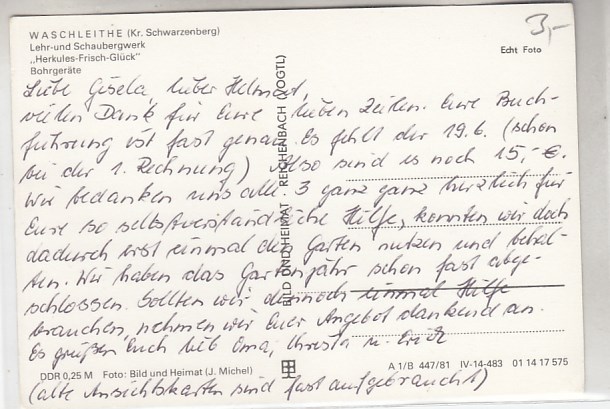 3,-
WASCHLEITHE (Kr. Schwarzenberg)
Lehr-und Schaubergwerk
„Herkules-Frisch-Glück"
Bohrgeräte
Echt Foto
Liebe Gisela, lieber Helmut,
vielen Dank für Eure lieben Zeilen. Eure Buch-
führung ist fast genau. Es fehlt der 19.6. (schon
bei der 1. Rechnung) Also sind es noch 15,- €.
Wir bedanken uns alle 3 ganz ganz herzlich für
Eure so selbstverständliche Hilfe, konnten wir doch
dadurch erst einmal den Garten nutzen und behal-
ten. Wir haben das Gartenjahr schon fast abge-
schlossen. Sollten wir dennoch einmal Hilfe
brauchen, nehmen wir Euer Angebot dankend an.
Es grüßen Euch lieb Oma, Christa u. Erik
BILD UND HEIMAT REICHENBACH (VOGTL)
DDR 0,25 M Foto: Bild und Heimat (J. Michel)
A 1/B 447/81 IV-14-483 01 14 17 575
(alte Ansichtskarten sind fast aufgebraucht)